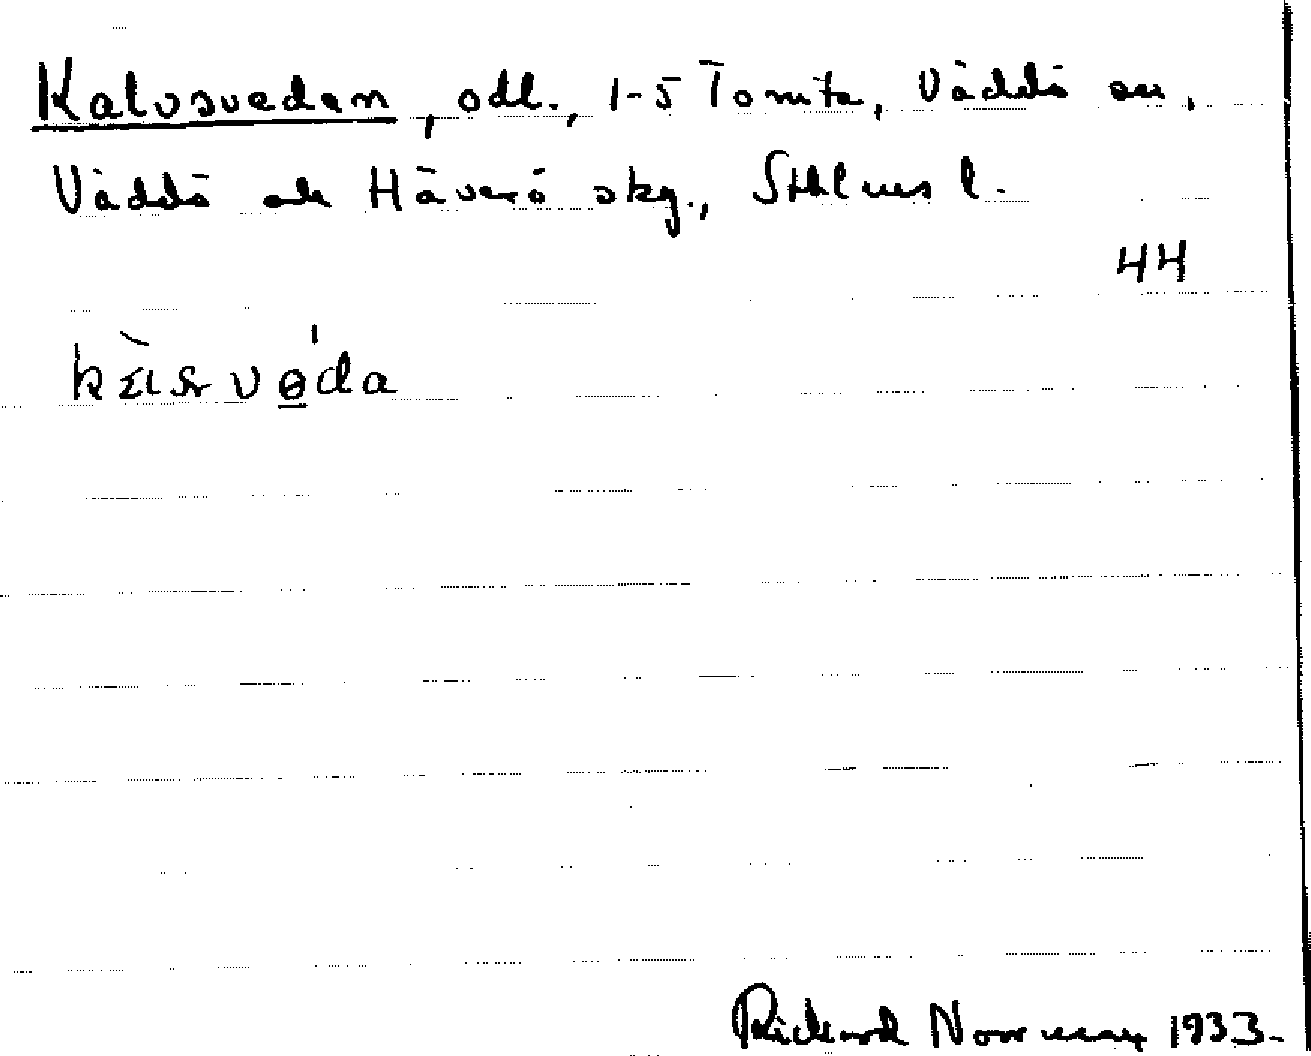 Kalvsveden, odl., 1-5 Tomta, Väddö sn,
Väddö och Häverö skg., Sthlms l.
44
Rickard Norrman 1933.